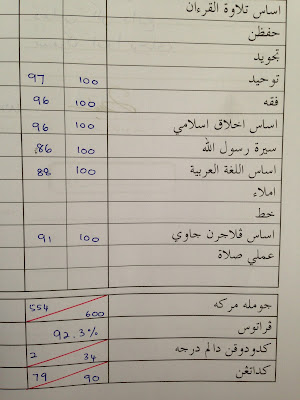 اساس تلاوة القرءان
حفظن
تجويد
توحيد 100 97
فقه 100 96
اساس اخلاق اسلامي 100 96
سيرة رسول الله 100 86
اساس اللغة العربية 100 88
املاء
خط
اساس ڤلاجرن جاوي 100 91
عملي صلاة
جومله مركه 600 / 554
ڤراتوس 92.3%
كدودوقن دالم درجه 34 / 2
كداتڠن 90 / 79